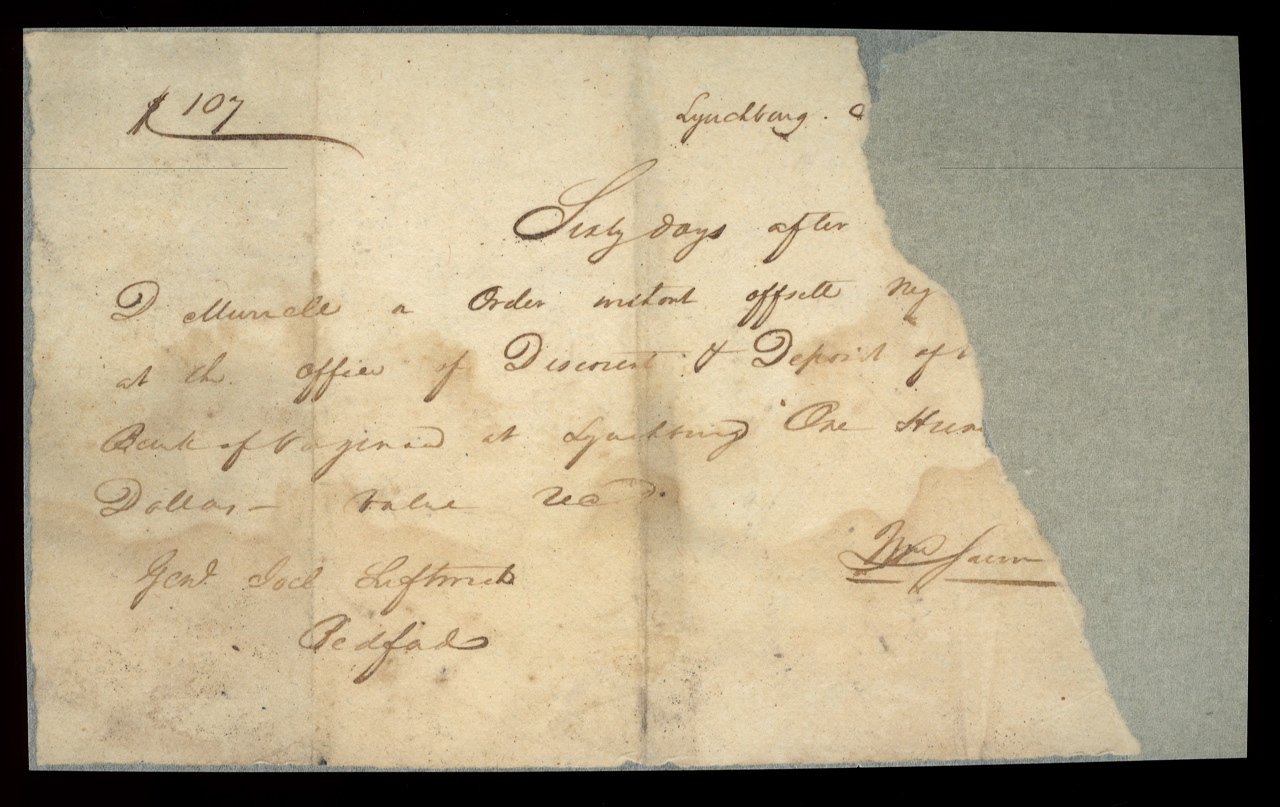 $ 107
Lynchburg.
Sixty days after
D Murrell or Order without offsett neg
at the office of Discount & Deposit of t
Bank of Virginia at Lynchburg One Hun
Dollars – value recd.
Wm
Genl. Joel Leftwich
Bedford